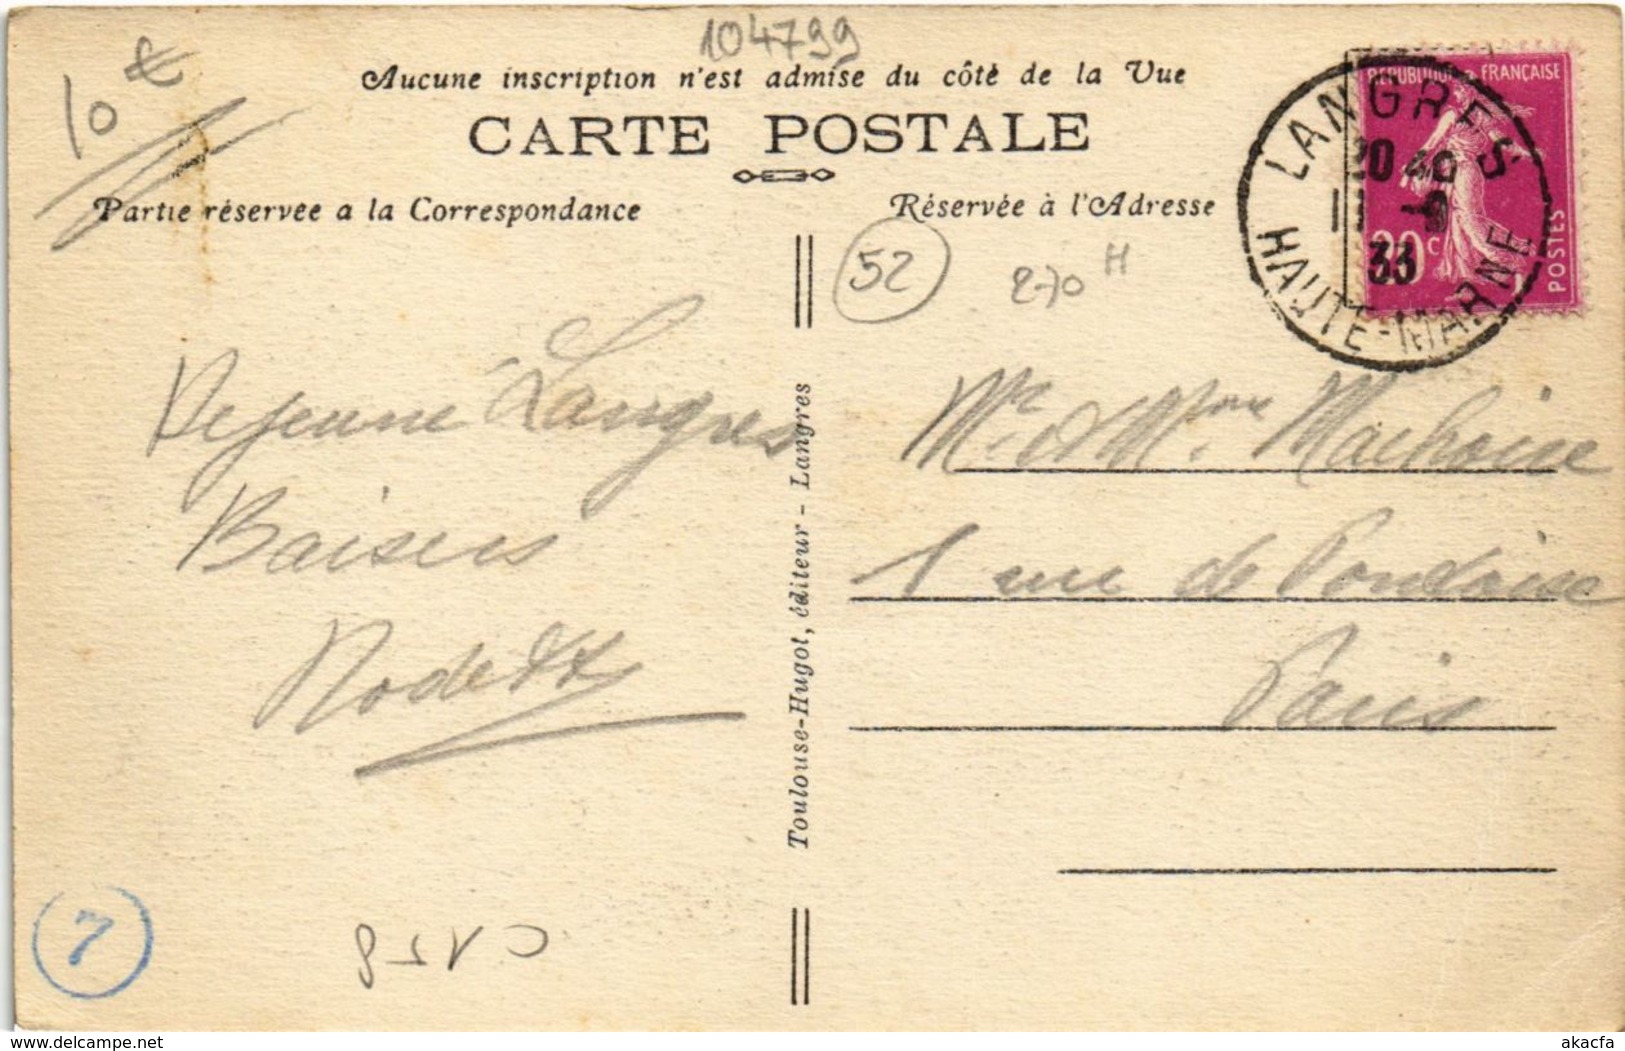 104799
10 €
Aucune inscription n'est admise du côté de la Vue
CARTE POSTALE
Partie réservée a la Correspondance
Réservée à l'Adresse
REPUBLIQUE FRANÇAISE
POSTES
LANGRES
20 40
33
HAUTE-MARNE
52
270 H
Dejeuné Langres
Baisers
Toulouse-Hugot, éditeur - Langres
Mr. et Mme. Machoise
1 rue de Pontoise
Paris
7
C158
delcampe.net
akacfa